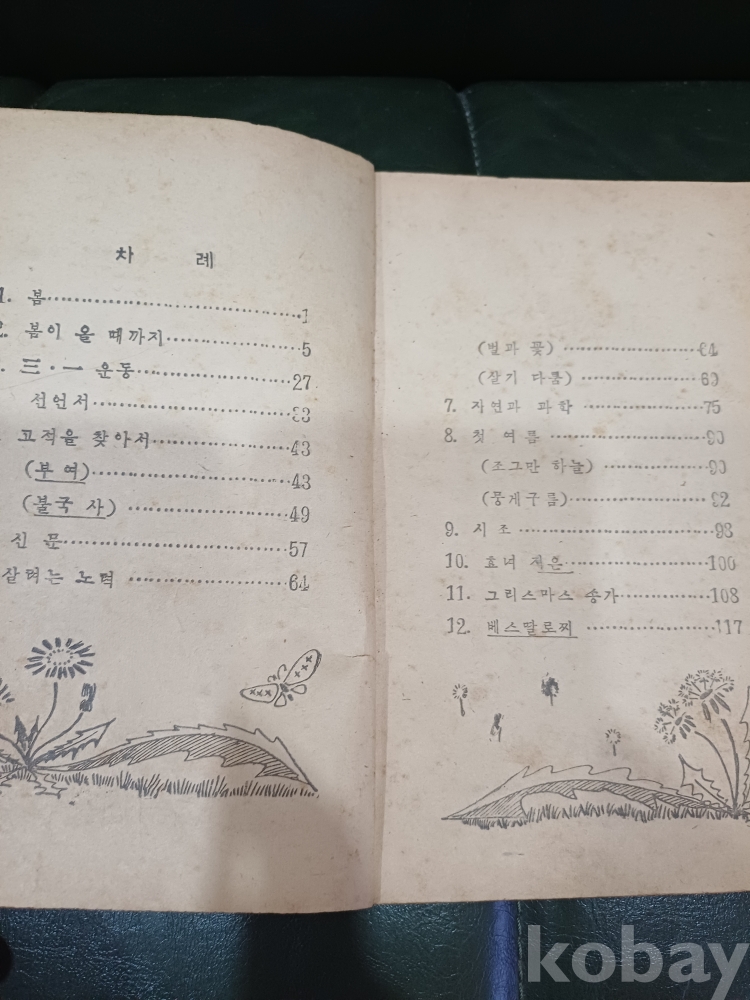 차 례
1. 봄 1
2. 봄이 올 때까지 5
三·一 운동 27
선언서 33
고적을 찾아서 43
(부 여) 43
(불국 사) 49
신 문 57
살려는 노력 64
(벌과 꽃) 64
(살기 다툼) 69
7. 자연과 과학 75
8. 첫 여름 90
(조그만 하늘) 90
(뭉게구름) 92
9. 시 조 98
10. 효녀 지은 100
11. 크리스마스 송가 108
12. 베스딸로찌 117
kobay